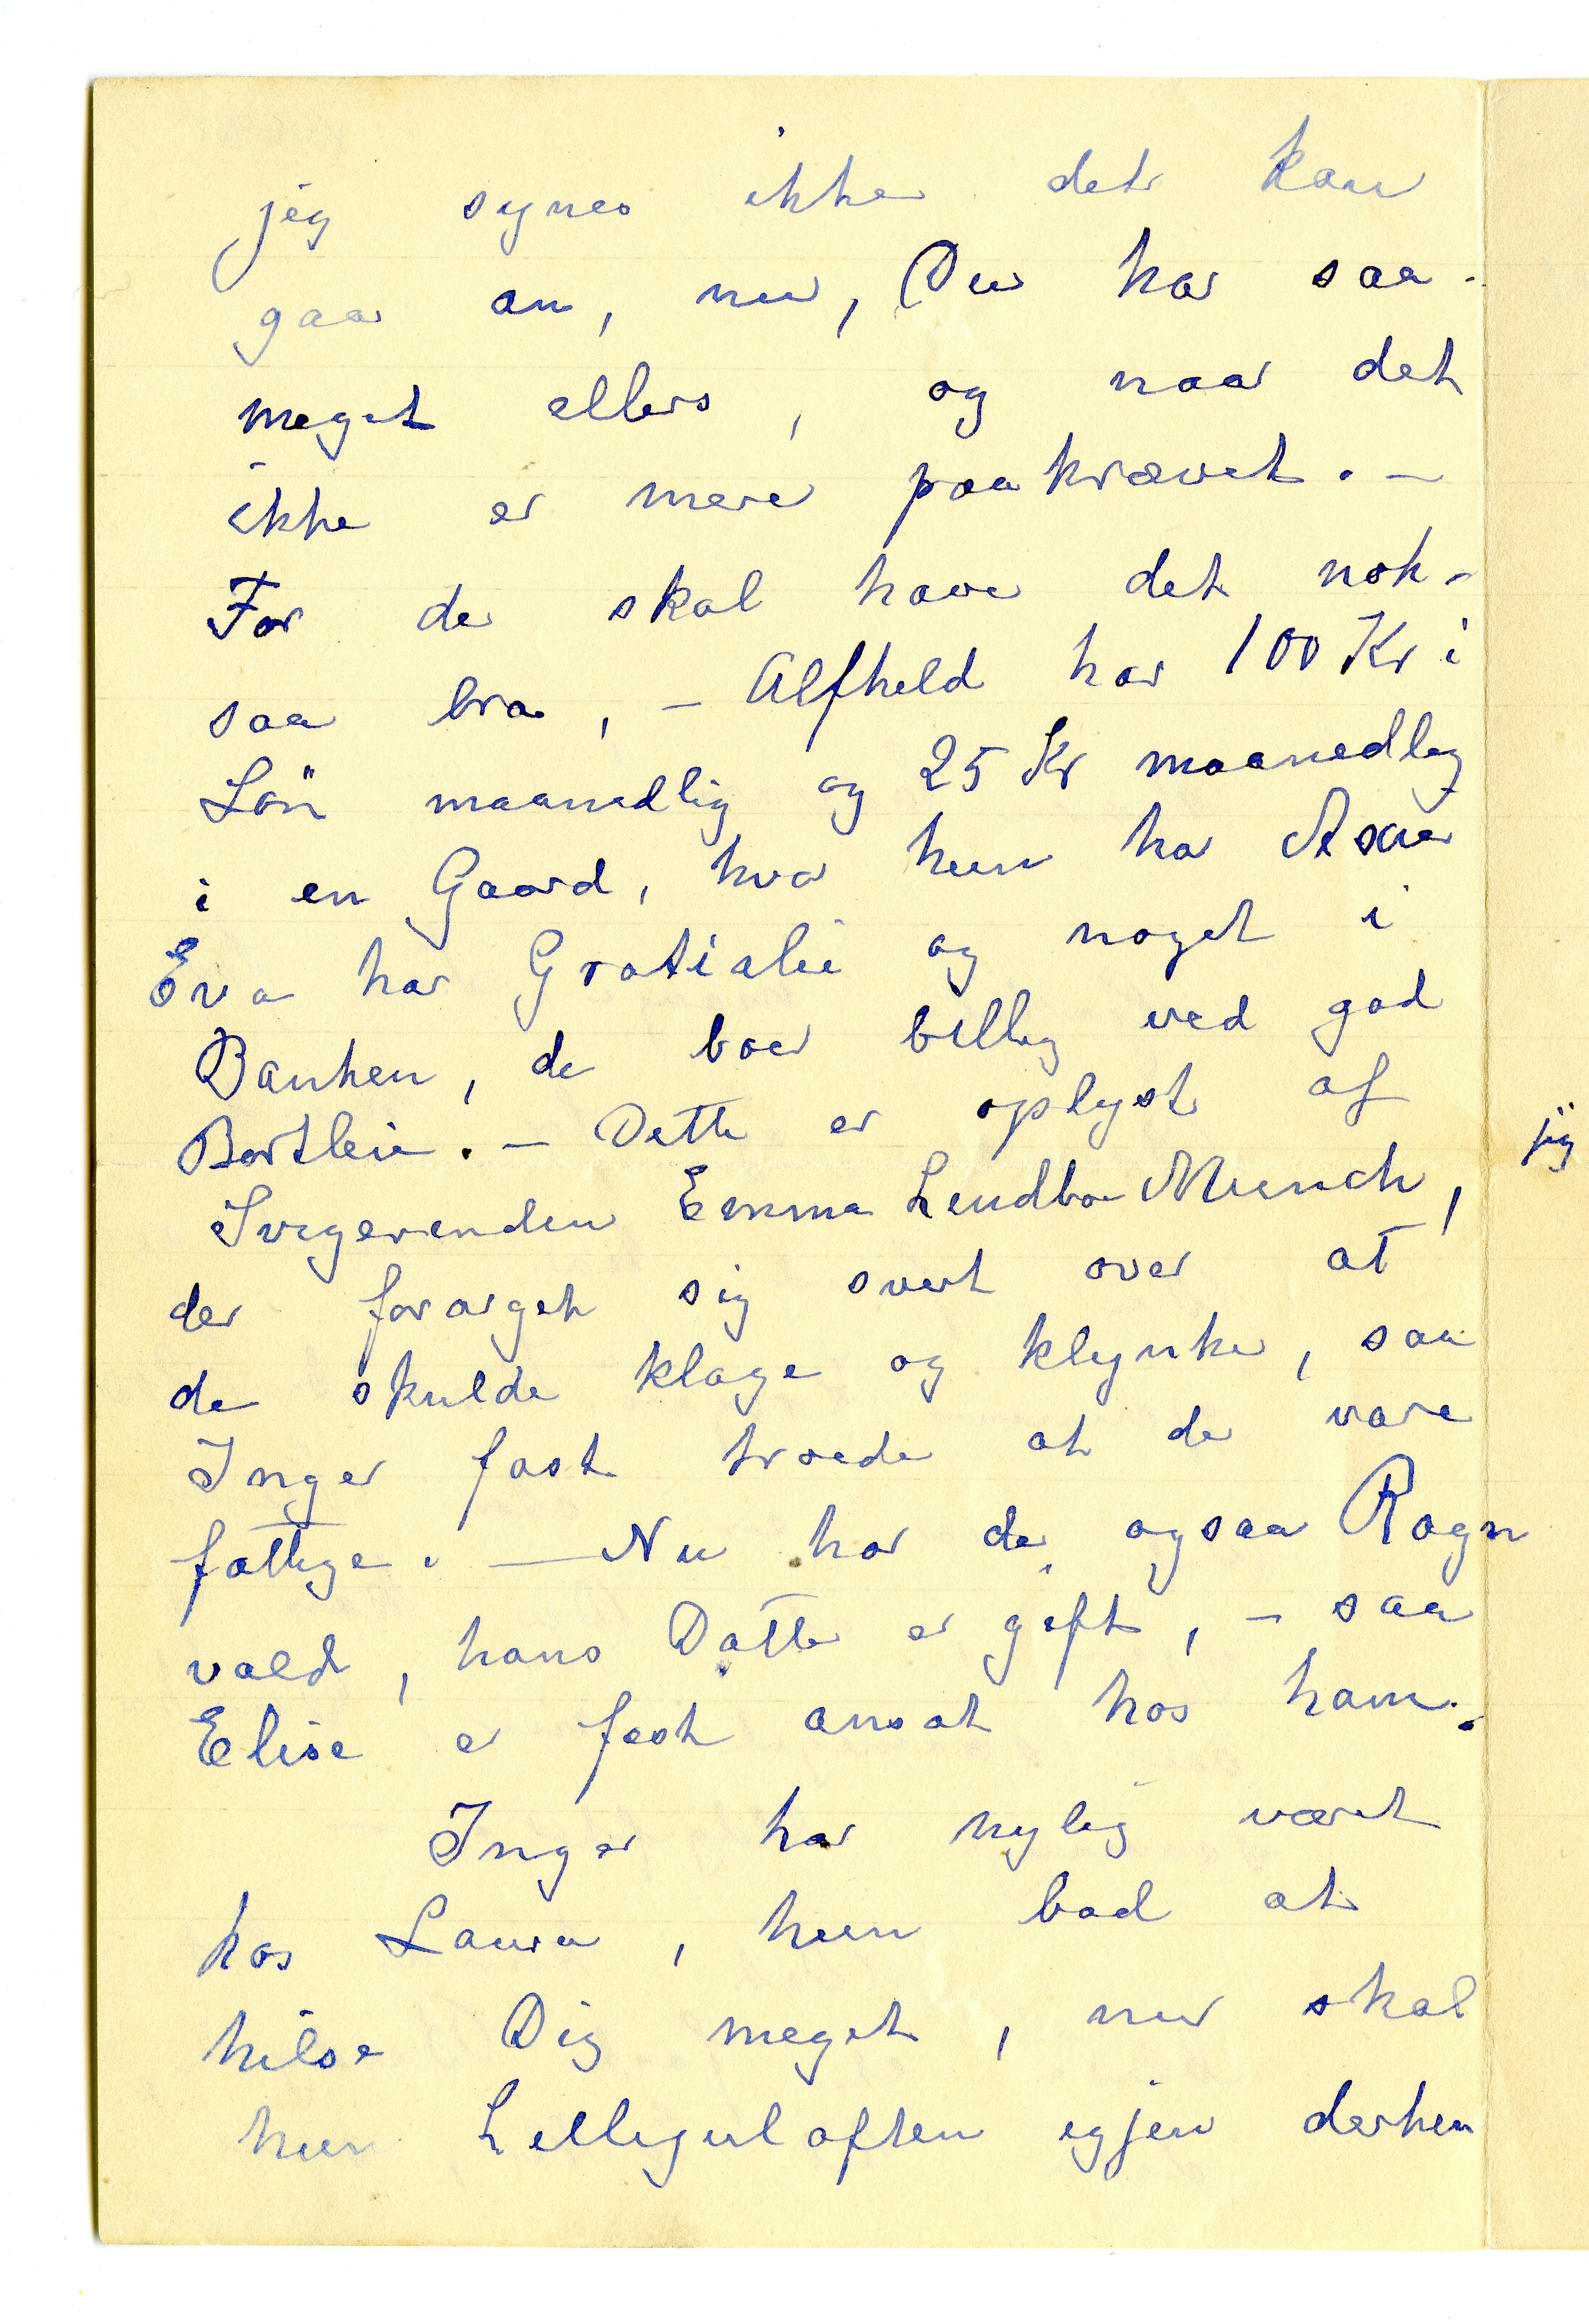 jeg synes ikke det kan
gaa an, nu, Du har saa
meget ellers, og naar det
ikke er mere paakrævet. –
For de skal have det nok
saa bra, – Alfhild har 100 Kr i
Løn maanedlig og 25 Kr maanedlig
i en Gaard, hvor hun har
Eva har Gratiale og noget i
Banken, de boer billig ved god
Bortleie. – Dette er oplyst af
Svigerinden Emma Lindboe Munch,
der forarget sig svert over at
de skulde klage og klynke, saa
Inger fast troede at de vare
fattige. – Nu har de ogsaa Ragn
vald, hans Datter er gift, – saa
Elise er fast ansat hos ham.
Inger har nylig været
hos Laura, hun bad at
hilse Dig meget, nu skal
hun Lillejulaften igjen derhen
jeg